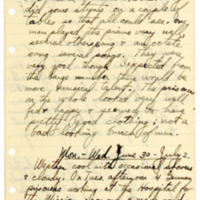 did some stunts on a couple of
tables so that all could see. One
man played the piano very well
several others sang & another
sang several songs. They were
very good though I expected from
the large number there would be
more musical talent. The prisoners
on the whole looked very well
fed & happy & seemed to have
pretty good clothing; not a
bad looking bunch of men.
Mon. - Wed. June 30 - July 2.
Weather cool with occasional showers
& cloudy. On Tues afternoon 4 German
prisoners working at the hospital for